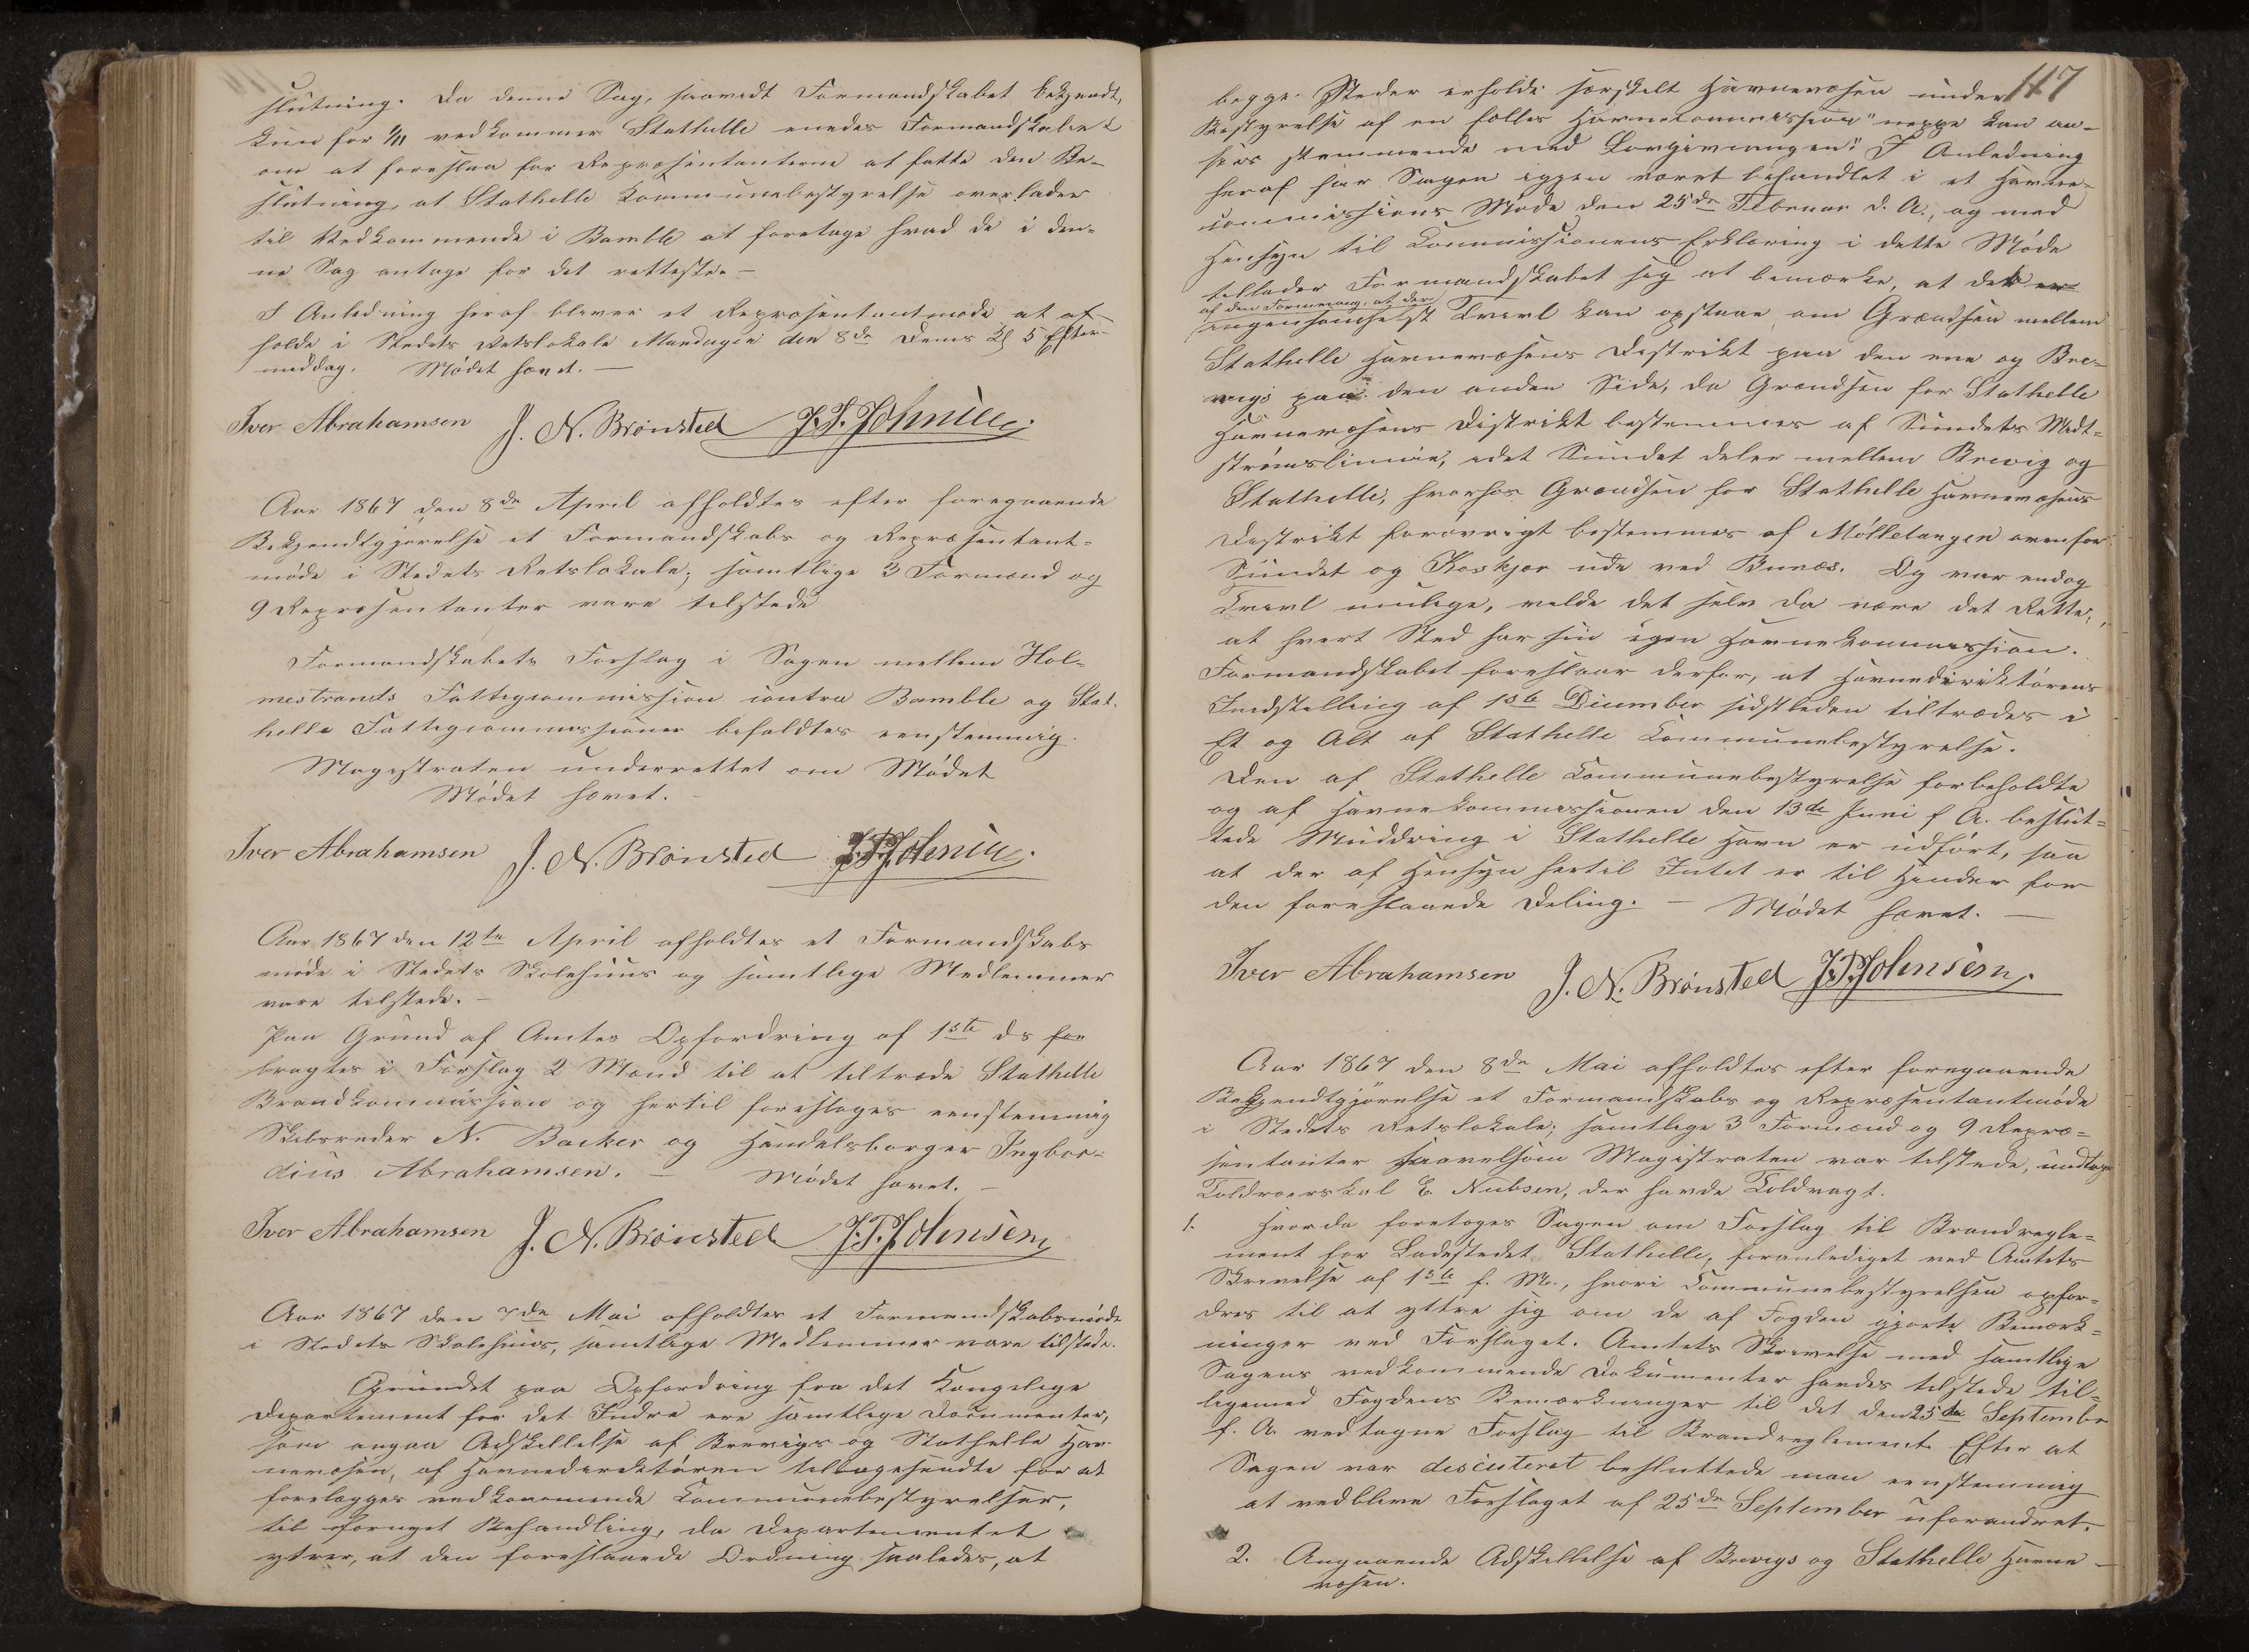 slutning. Da denne Sag, saavidt Formandskabet bekjendt,
kun for 1/11 vedkommer Stathelle enedes Formandskabet
om at foreslaa for Repræsentanterne at fatte den Be-
slutning, at Stathelle Kommunebestyrelse overlader
til Vedkommende i Bamble at foretage hvad de i den-
ne Sag antage for det retteste. —
I Anledning heraf bliver et Repræsentantmøde at af-
holde i Stedets Retslokale Mandagen den 8de Dennes Kl 5 Efter-
middag. Mødet hævet. —
Iver Abrahamsen J. N. Brønsted J.T. Johnsen.
Aar 1867 den 8de April afholdtes efter foregaaende
Bekjendtgjørelse et Formandskabs og Repræsentant-
møde i Stedets Retslokale; samtlige 3 Formænd og
9 Repræsentanter vare tilstede
Formandskabets Forslag i Sagen mellem Hol-
mestrands Fattigcommission contra Bamble og Stat-
helle Fattigcommissioner befoldtes eenstemmig.
Magistraten underrettet om Mødet
Mødet hævet. —
Iver Abrahamsen J. N. Brønsted J.T. Johnsen.
Aar 1867 den 12te April afholdtes et Formandskabs
møde i Stedets Skolehuus og samtlige Medlemmer
vare tilstede. —
Paa Grund af Amtes Opfordring af 1ste ds for
bragtes i Forslag 2 Mænd til at tiltræde Stathelle
Brandkommission og hertil foresloges eenstemmig
Skibsreder N. Backer og Handelsborger Ingbor-
dius Abrahamsen. — Mødet hævet. —
Iver Abrahamsen J. N. Brønsted J.T. Johnsen
Aar 1867 den 7de Mai afholdtes et Formandskabsmøde
i Stedets Skolehuus, samtlige Medlemmer vare tilstede.
Grundet paa Opfordring fra det Kongelige
Departement for det Indre ere samtlige Documenter,
som angaa Adskillelse af Brevigs og Stathelle Hav-
nevæsen, af Havnedirektøren tilbagesendte for at
forelægges vedkommende Communebestyrelser,
til fornyet Behandling, da Departementet
ytrer, at den foreslaaede Ordning saaledes, at
117
begge Steder erholde særskilt Havnevæsen under
Bestyrelse af en fælles Havnecommission" neppe kan an-
sees stemmende med Lovgivningen." I Anledning
heraf har Sagen igjen været behandlet i et Havne-
commissions Møde den 25de Februar d. A., og med
Hensyn til Commissionens Erklæring i dette Møde
tillader Formandskabet sig at bemærke, at det er
af den Formening, at der
ingensomhelst Tvivl kan opstaae om Grændsen mellem
Stathelle Havnevæsens Distrikt paa den ene og Bre-
vigs paa den anden Side, da Grændsen for Stathelle
Havnevæsens Distrikt bestemmes af Sundets Midt-
strømslinie, idet Sundet deler mellem Brevig og
Stathelle, hvorhos Grændsen for Stathelle Havnevæsens
Distrikt forøvrigt bestemmes af Mølletangen ovenfor
Sundet og Koskjær ude ved Bunæs. Og var endog
Tvivl mulige, vilde det selv da være det Rette,
at hvert Sted har sin egen Havnekommission.
Formandskabet foreslaar derfor, at Havnedirektørens
Indstilling af 1ste December sidstleden tiltrædes i
Et og Alt af Stathelle Communebestyrelse.
Den af Stathelle Communebestyrelse forbeholdte
og af Havnekommissionen den 13de Juni f A. beslut-
tede Muddring i Stathelle Havn er udført, saa
at der af Hensyn hertil Intet er til Hinder for
den foreslaaede Deling. — Mødet hævet. —
Iver Abrahamsen J. N. Brønsted J.T. Johnsen.
Aar 1867 den 8de Mai afholdtes efter foregaaende
Bekjendtgjørelse et Formandskabs og Repræsentantmøde
i Stedets Retslokale; samtlige 3 Formænd og 9 Repræ-
sentanter saavelsom Magistraten var tilstede, undtagen
Toldroerskal E. Nubsen, der havde Toldvagt.
1. Hvorda foretoges Sagen om Forslag til Brandregle-
ment for Ladestedet Stathelle, foranlediget ved Amtets
Skrivelse af 1ste f. M., hvori Communebestyrelsen opfor-
dres til at yttre sig om de af Fogden gjorte Bemærk-
ninger ved Forslaget. Amtets Skrivelse med samtlige
Sagens vedkommende Dokumenter havdes tilstede til-
ligemed Fogdens Bemærkninger til det den 25de September
f. A. vedtagne Forslag til Brandreglement. Efter at
Sagen var discuteret besluttede man eenstemmig
at vedblive Forslaget af 25de September uforandret.
2. Angaaende Adskillelse af Brevigs og Stathelle Havne-
væsen.